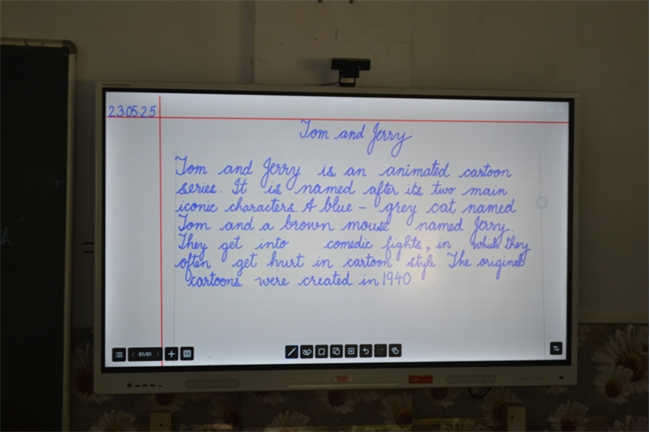 23.05.25
Tom and Jerry
Tom and Jerry is an animated cartoon
series. It is named after its two main
iconic characters. A blue - grey cat named
Tom and a brown mouse named Jerry.
They get into comedic fights, in while they
often get hurt in cartoon style. The original
cartoons were created in 1940
01/01